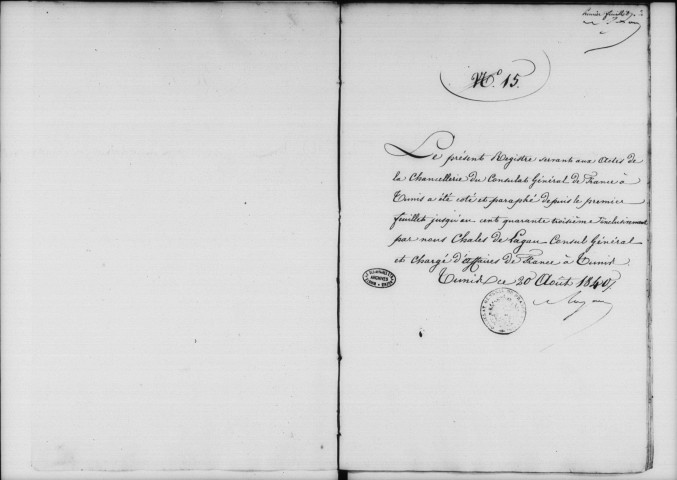 N.o 15.
Le présent Registre servant aux Actes de
la Chancellerie du Consulat Général de France à
Tunis a été coté et paraphé depuis le premier
feuillet jusqu'au cent quarante troisième inclusivement
par nous Chales de Lagau Consul Général
et Chargé d'affaires de France à Tunis
Tunis ce 20 Août 1840
ARCHIVES